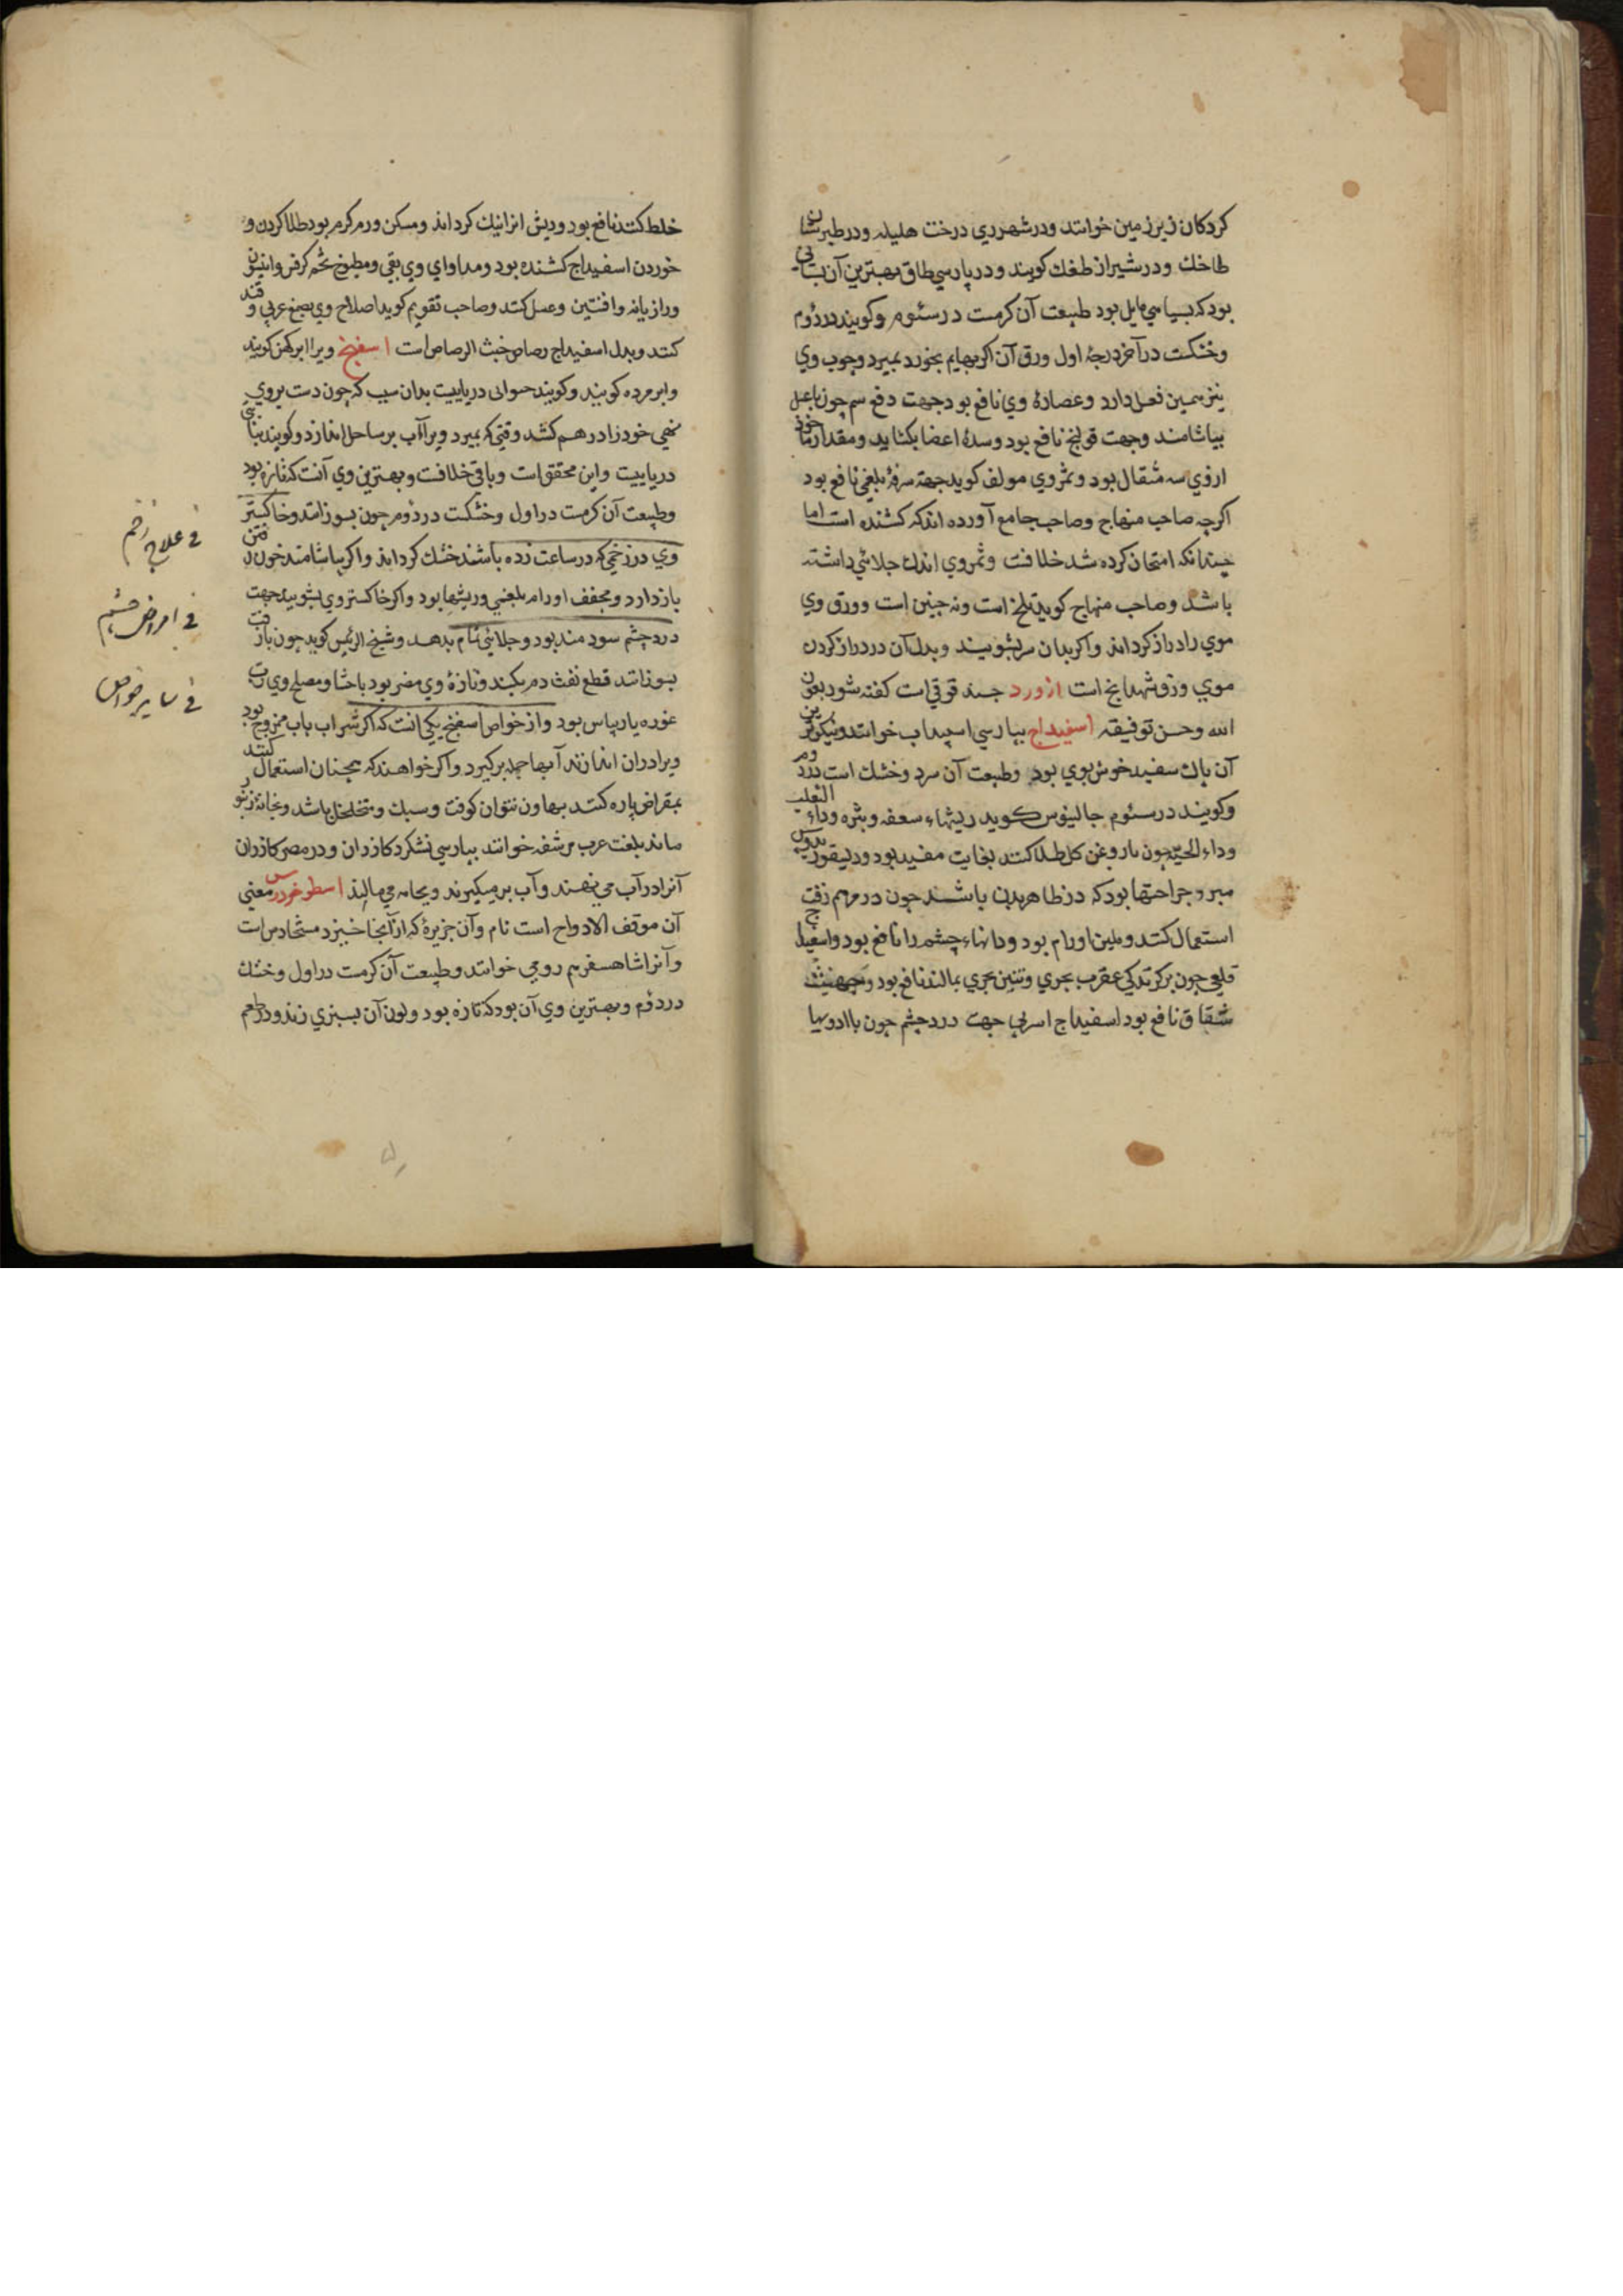 کردکان زیرزمین خوانند ودر شهر ري درخت هلیله ودر طبرستان
طاخك ودر شیراز طغك کویند ودر پارسي طاق بهترین آن بستانی
بود که بسیاهي مایل بود طبیعت آن کرمست در سئوم وکویند در دؤم
وخشکست در آخر درجهٔ اول ورق آن اکر بهایم بخورد بمیرد وچوب وي
نیز همین فعل دارد وعصارهٔ وي نافع بود جهت دفع سم چون باعسل
بیاشامند وجهت قولنج نافع بود وسدهٔ اعضا بکشاید ومقدار ماخوذ
ازوي سه مثقال بود وثمر وي مولف کوید جهة سرفهٔ بلغمي نافع بود
اکرچه صاحب منهاج وصاحب جامع آورده اند که کشنده است اما
چندانکه امتحان کرده شد خلافست وثمر وي اندك جلائي داشته
باشد وصاحب منهاج کوید تلخ است ونه چنین است وورق وي
موي را دراز کرداند واکر بدان سر بشویند وبدل آن در دراز کردن
موي ورق شهدانج است ازورد حند قوقي است کفته شود بعون
الله وحسن توفیقه اسفیداج بپارسي اسپیداب خوانند ونیکوترین
آن پاك سفید خوش بوي بود وطبیعت آن سرد وخشك است در دوم
وکویند در سئوم جالینوس کوید ریشهاء سعفه وبثره وداء الثعلب
وداء الحیّه چون با روغن کل طلا کنند بغایت مفید بود ودیسقوریدوس
مبرد جراحتها بود که در ظاهر بدن باشند چون در مرهم زفت
استعمال کنند وملین اورام بود ودانهاء چشم را نافع بود واسفیداج
قلعي چون برکزندکي عقرب بحري وتنین بحري بمالند نافع بود وجهت
شقاق نافع بود اسفیداج اسربي جهت درد چشم چون باادویها
خلط کنند نافع بود وریش انرا نیك کرداند ومسکن ورم کرم بود طلا کردن و
خوردن اسفیداج کشنده بود ومداواي وي بقي ومطبوخ تخم کرفس وانیسون
ورازیانه وافسنتین وعسل کنند وصاحب تقویم کوید اصلاح وي بصمغ عربي و قند
کنند وبدل اسفیداج رصاص خبث الرصاص است اسفنج ویرا ابر کهن کویند
وابر مرده کویند وکویند حیوانی دریاییست بدان سبب که چون دست بروي
نهي خود را درهم کشد وقتي که بمیرد ویرا آب بر ساحل اندازد وکویند نباتی
دریاییست واین محقق است وباقي خلافست وبهترین وي آنست که تازه بود
وطبیعت آن کرمست در اول وخشکست در دؤم چون بسوزانند وخاکستر
وي در زخمي که در ساعت زده باشند خشك کرداند واکر بیاشامند خون رفتن
بازدارد ومجفف اورام بلغمي وریشها بود واکر خاکستر وي بشویند جهت
درد چشم سودمند بود وجلائي تمام بدهد وشیخ الرئیس کوید چون بازفت
بسوزانند قطع نفث دم بکند وتازهٔ وي مضر بود باحشا ومصلح وي رب
غوره یا ریباس بود واز خواص اسفنج یکي انست که اکر شراب باب ممزوج بود
ویرا دران اندازند آبها جمله برکیرد واکر خواهند که همچنان استعمال کنند
بمقراض پاره کنند بهاون نتوان کوفت وسبك ومتخلخل باشد
ماند بلغت عرب مرشفه خوانند بپارسي نشکرد کازران ودر مصر کازران
آنرا در آب مي نهند وآب برمیکیرند وبجامه مي مالند اسطوخودس معني
آن موقف الارواح است نام وآن جزیرهٔ که از آنجا خیزد
وآنرا شاهسفرم رومي خوانند وطبیعت آن کرمست در اول وخشك
در دؤم وبهترین وي آن بود که تازه بود ولون آن بسبزي زند ودر طعم
في علاج زخم
في امراض چشم
في سایر خواص